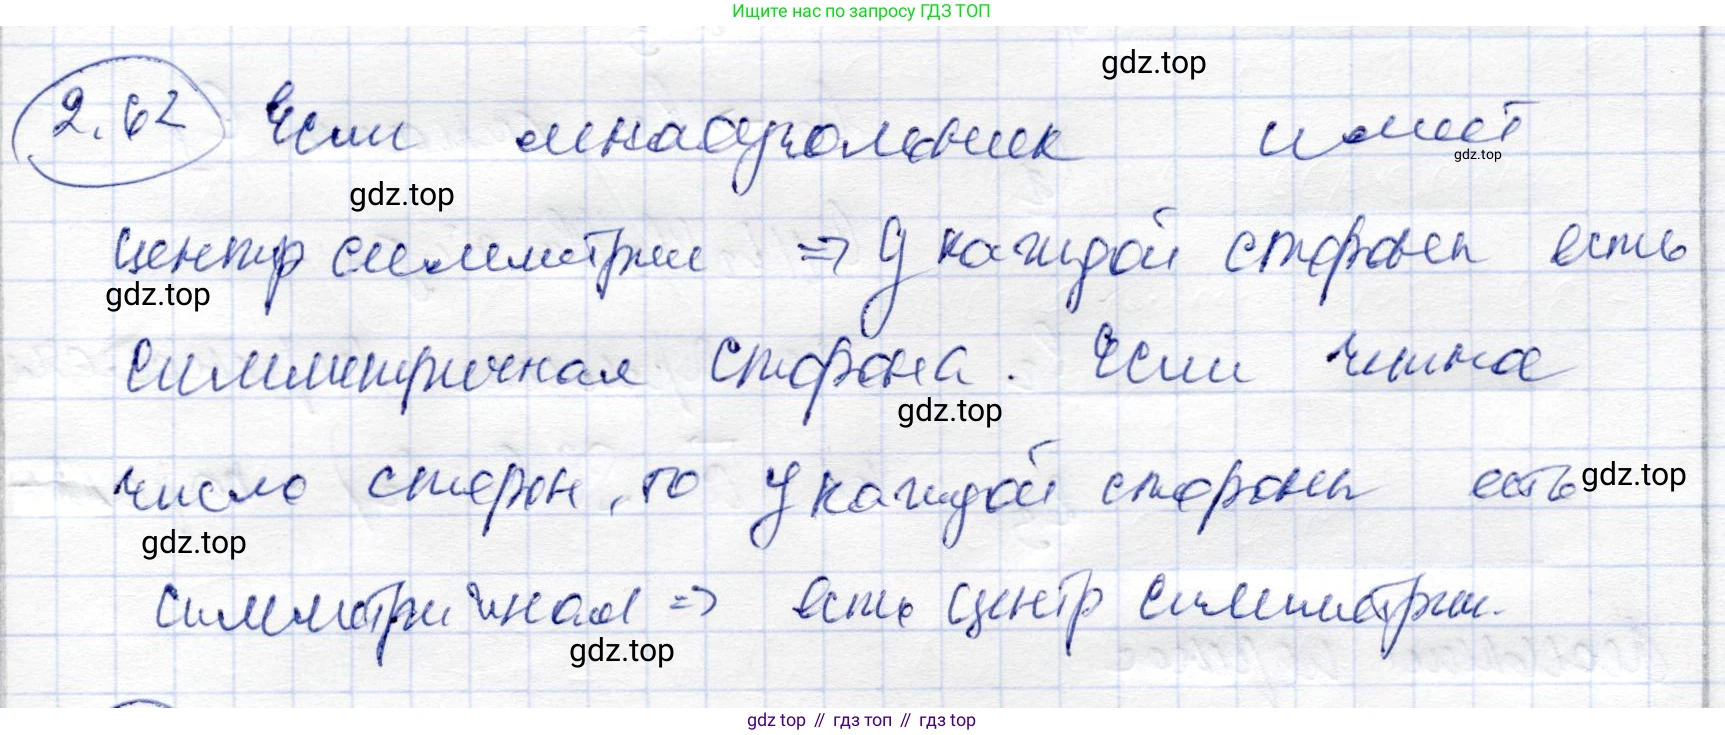 Ищите нас по запросу ГДЗ ТОП
gdz.top
2.62 Если многоугольник имеет
gdz.top
gdz.top
центр симметрии => У каждой стороны есть
gdz.top
симметричная сторона. Если четное
gdz.top
число сторон, то у каждой стороны есть
gdz.top
gdz.top
симметричная => есть центр симметрии.
gdz.top
gdz top // гдз топ // гдз top